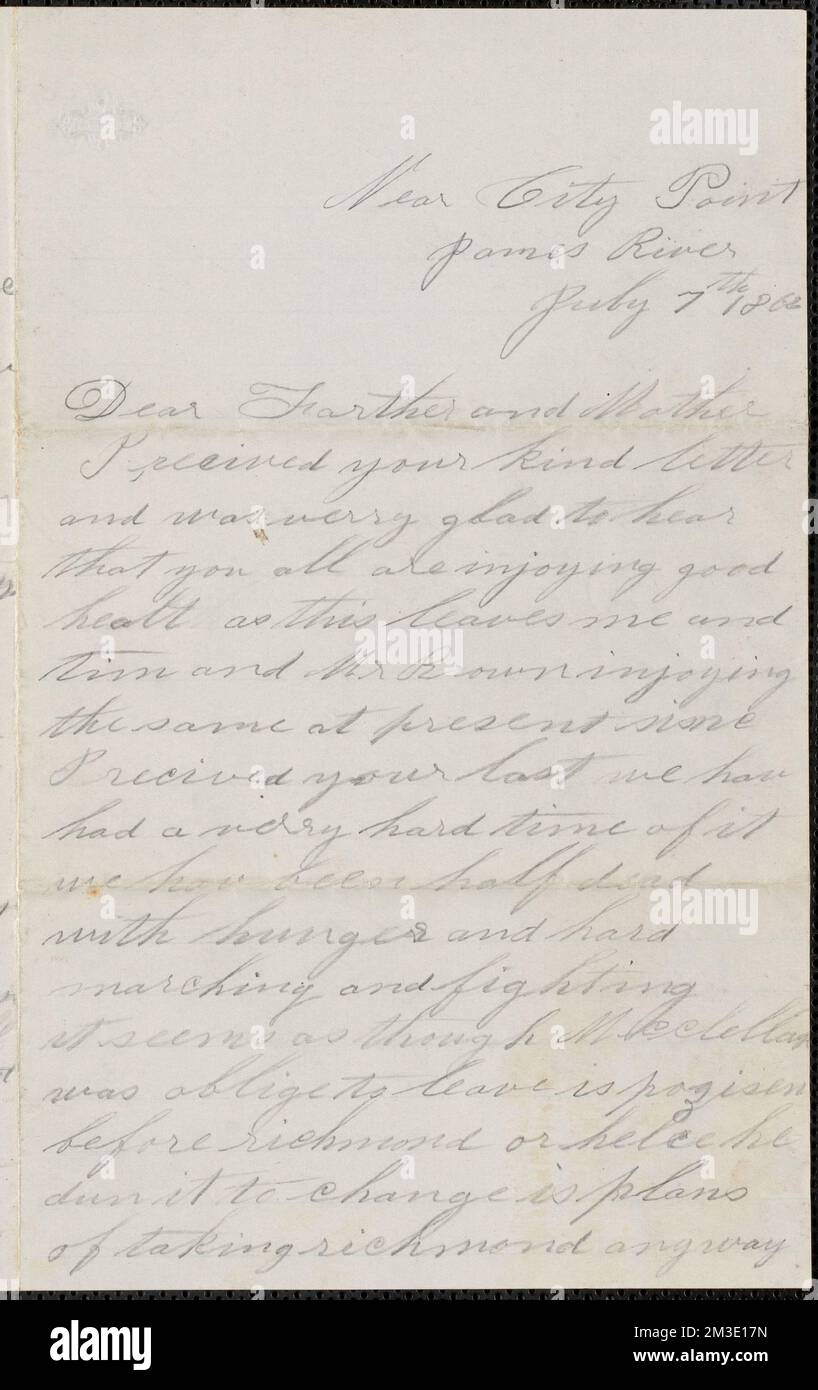 Near City Point
James River
July 7th 1862
Dear Farther and Mother
I recived your kind letter
and was verry glad to hear
that you all are injoying good
healt as this leaves me and
tim and Mr Brown injoying
the same at present sisnc
I recived your last we hav
had a verry hard time of it
we hav been half dead
with hunger and hard
marching and fighting
it seems as though Mcclellan
was oblige to leave is pogisen
before richmond or helce he
dun it to change is plans
of taking richmond anyway
alamy
Image ID: 2M3E17N
www.alamy.com